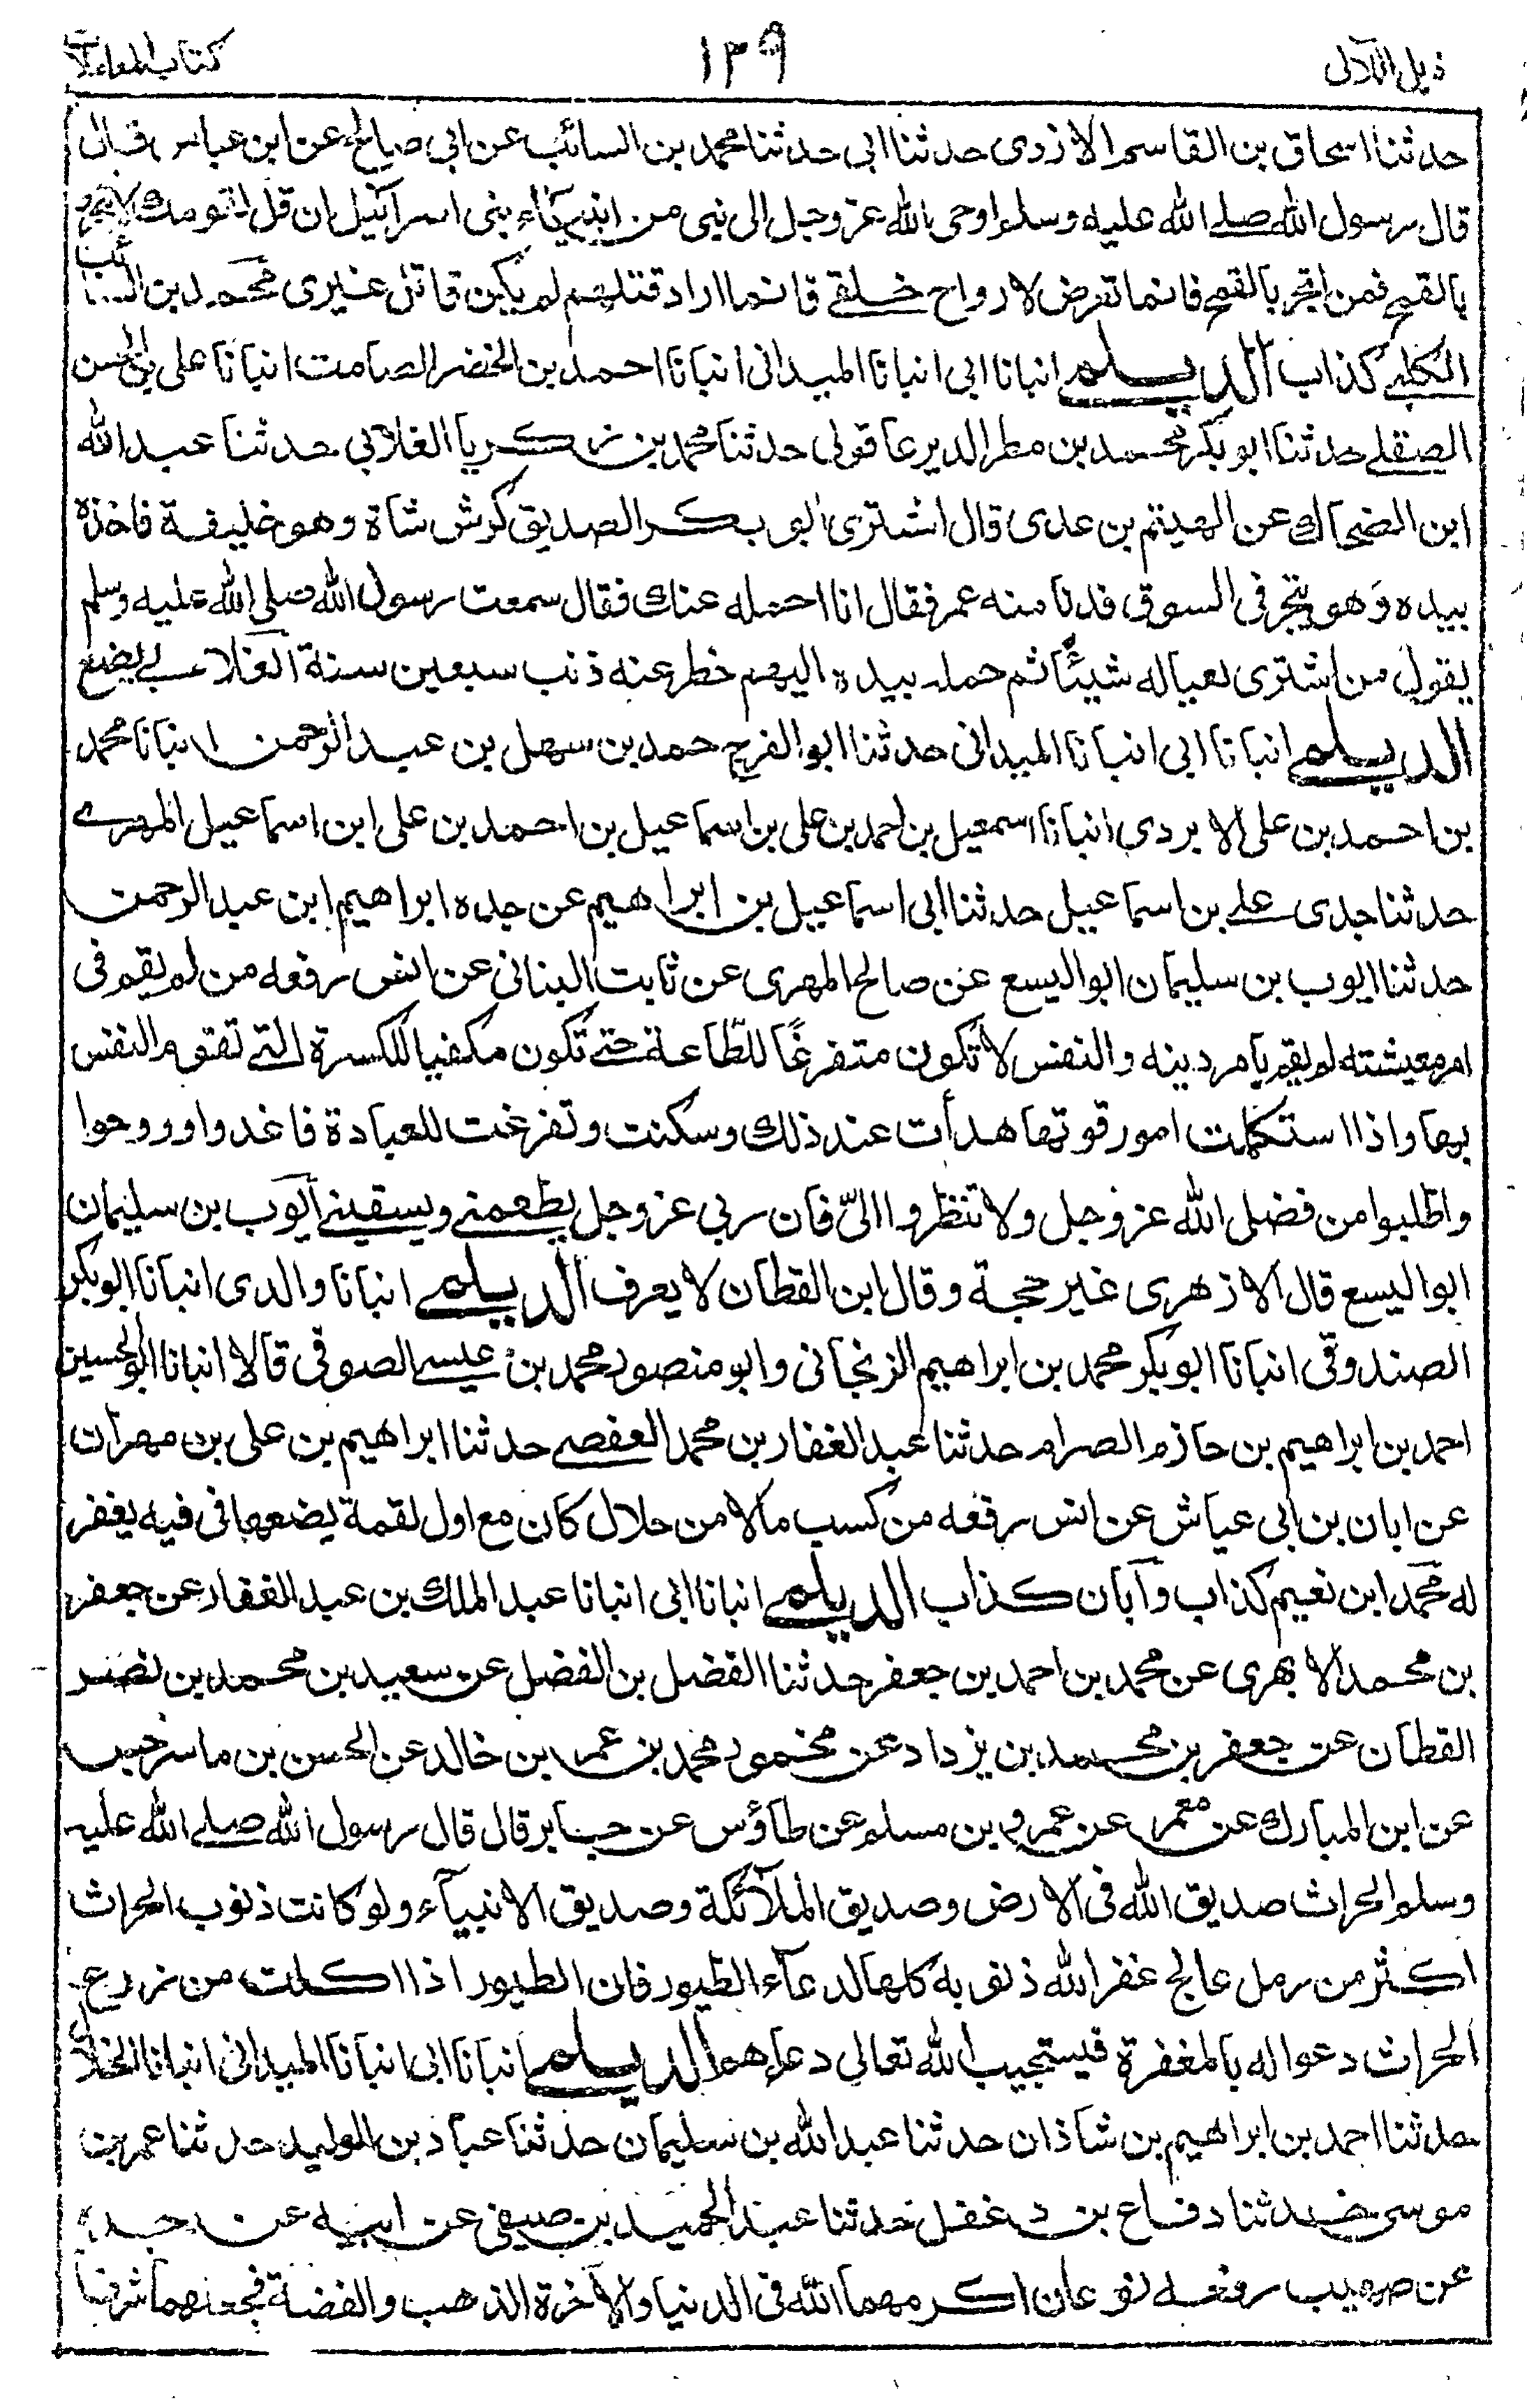 ذيل اللآلى
١٣٩
كتاب المعاملات
حدثنا اسحاق بن القاسم الازدى حدثنا ابى حدثنا محمد بن السائب عن ابى صالح عن ابن عباس قال
قال رسول الله صلے الله عليه وسلم اوحى الله عز وجل الى نبى من انبياء بنى اسرائيل ان قل لقومك لا تتجروا
بالقمح فمن اتجر بالقمح فانما تعرض لارواح خلقے فانما اراد قتلهم لم يكن قاتل غيرى محمد بن السائب
الكلبے كذاب الديلمے انبانا ابى انبانا الميدانى انبانا احمد بن الخضر الصامت انبانا على بن الحسن
الصقلے حدثنا ابو بكر محمد بن مطر الديرعاقولى حدثنا محمد بن زكريا الغلابي حدثنا عبد الله
ابن الضحاك عن الهيثم بن عدى قال اشترى ابو بكر الصديق كرش شاة وهو خليفة فاخذه
بيده وهو يتجر فى السوق فدنا منه عمر فقال انا احمله عنك فقال سمعت رسول الله صلى الله عليه وسلم
يقول من اشترى لعياله شيئا ثم حمله بيده اليهم حط عنه ذنب سبعين سنة الغلابے يضع
الديلمے انبانا ابى انبانا الميدانى حدثنا ابو الفرج حمد بن سهل بن عبد الرحمن انبانا محمد
بن احمد بن على الابردى انبانا اسمعيل بن احمد بن على بن اسماعيل بن احمد بن على ابن اسماعيل المهرے
حدثنا جدى علے بن اسماعيل حدثنا ابى اسماعيل بن ابراهيم عن جده ابراهيم ابن عبد الرحمن
حدثنا ايوب بن سليمان ابو اليسع عن صالح المهرى عن ثابت البنانى عن انس رفعه من لم يقم فى
امر معيشته لم يقم بامر دينه والنفس لا تكون متفرغا للطاعة حتے تكون مكفيا للكسرة التے تقوم النفس
بها واذا استكملت امور قوتها هدأت عند ذلك وسكنت وتفرغت للعبادة فاغدوا وروحوا
واطلبوا من فضل الله عز وجل ولا تنظروا الىّ فان ربي عز وجل يطعمنے ويسقينے ايوب بن سليمان
ابو اليسع قال الازهرى غير حجة وقال ابن القطان لا يعرف الديلمے انبانا والدى انبانا ابو بكر
الصندوقى انبانا ابو بكر محمد بن ابراهيم الزنجانى وابو منصور محمد بن عيسے الصوفى قالا انبانا ابو الحسين
احمد بن ابراهيم بن حازم الصرام حدثنا عبد الغفار بن محمد العفصے حدثنا ابراهيم بن على بن مهران
عن ابان بن ابى عياش عن انس رفعه من كسب مالا من حلال كان مع اول لقمة يضعها فى فيه يغفر
له محمد ابن نعيم كذاب وآبان كذاب الديلمے انبانا ابى انبانا عبد الملك بن عبد الغفار عن جعفر
بن محمد الابهرى عن محمد بن احمد بن جعفر حدثنا الفضل بن الفضل عن سعيد بن محمد بن نصر
القطان عن جعفر بن محمد بن يزداد عن محمود محمد بن عمر بن خالد عن الحسن بن ماسرجس
عن ابن المبارك عن معمر عن عمرو بن مسلم عن طاؤس عن جابر قال قال رسول الله صلے الله عليه
وسلم الحراث صديق الله فى الارض وصديق الملآئكة وصديق الانبيآء ولو كانت ذنوب الحراث
اكثر من رمل عالج غفر الله ذنوبه كلها لدعآء الطيور فان الطيور اذا اكلت من زرع
الحراث دعوا له بالمغفرة فيستجيب الله تعالى دعآءهم الديلمے انبانا ابى انبانا الميدانى انبانا الخلال
حدثنا احمد بن ابراهيم بن شاذان حدثنا عبد الله بن سليمان حدثنا عباد بن الوليد حدثنا عمر بن
موسى حدثنا دفاع بن دغفل حدثنا عبد الحميد بن صيفى عن ابيه عن جده
عن صهيب رفعه نوعان اكرمهما الله فى الدنيا والآخرة الذهب والفضة فجعلهما شرفا